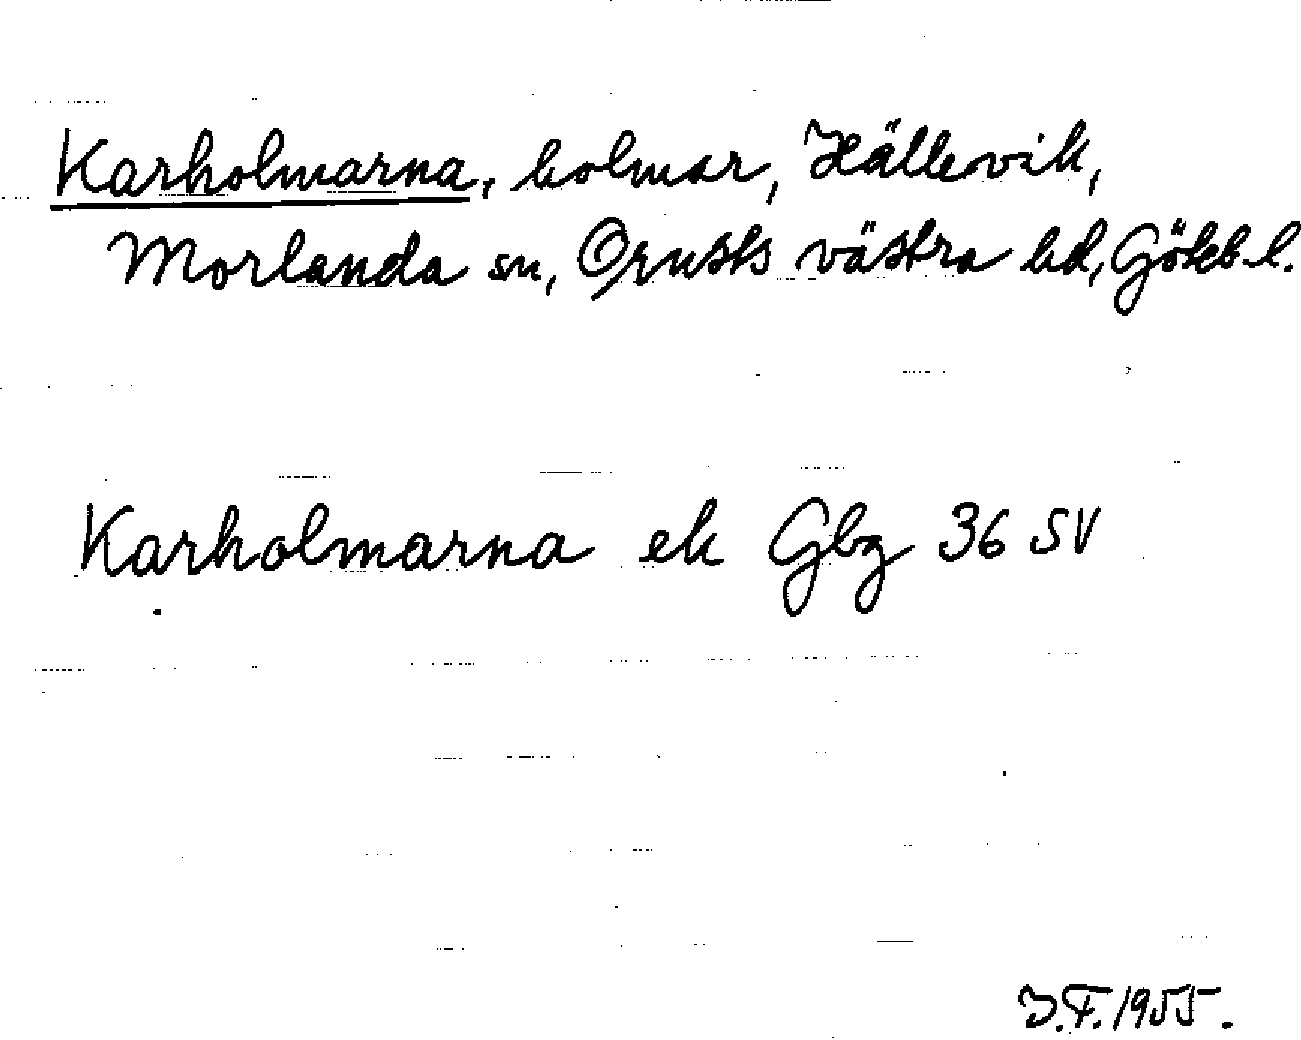 Karholmarna, holmar, Hällevik,
Morlanda sn, Orusts västra hd, Götebl.
Karholmarna ek Gbg 36 SV
J.F. 1955.